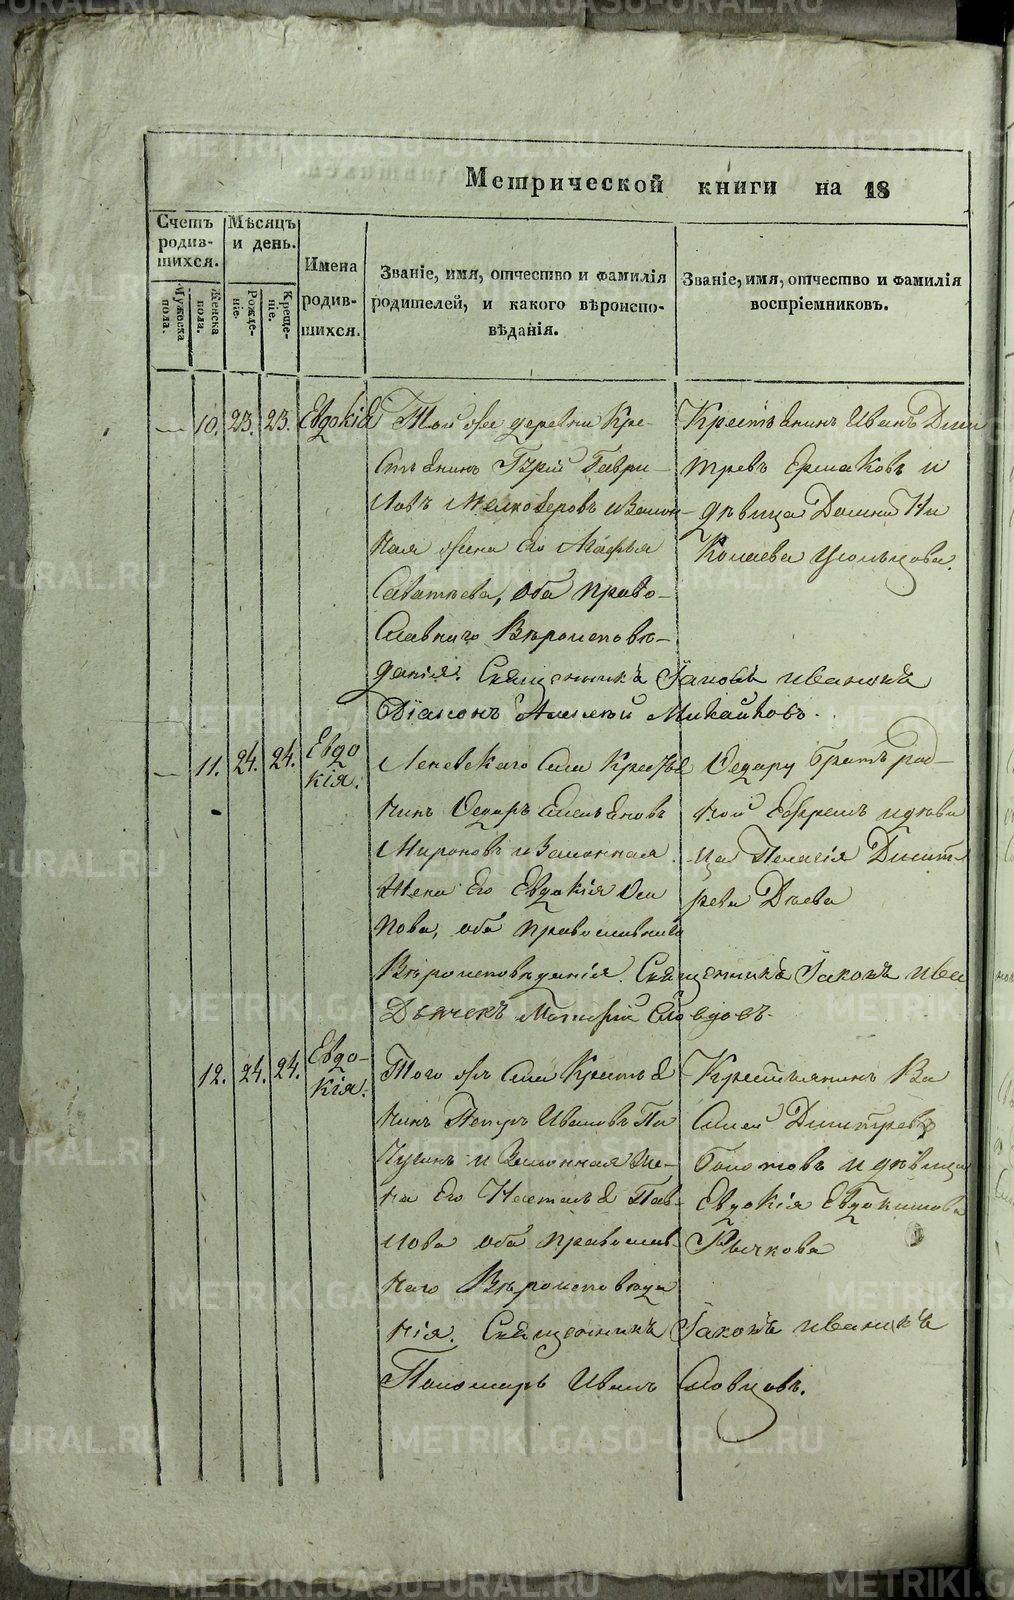 Метрической книги на 18
Счетъ родив- шихся.
Мужеска пола.
Женска пола.
Мѣсяцъ и день.
Рожде- ніе.
Креще- ніе.
Имена родив- шихся.
Званіе, имя, отчество и фамилія
родителей, и какого вѣроиспо-
вѣданія.
Званіе, имя, отчество и фамилія
воспріемниковъ.
10. 23. 23. Евдокія
Той же деревни Кре-
стьянинъ Гурій Гаври-
ловъ и закон-
ная жена его Марья
Саватѣева, оба право-
славнаго Вѣроисповѣ-
данія. Священникъ Іаковъ Ивановъ
Діаконъ Алексѣй Михайловъ.
Крестьянинъ Иванъ Дми
тревъ Ермаковъ и
дѣвица Домна Ни
колаева Усольцова.
11. 24. 24. Евдо
кія.
Леневскаго села Кресть
нинъ Ѳедоръ Емельяновъ
Мироновъ и Законная
Жена Его Евдокія Оси
пова, оба православнаго
Вѣроисповѣданія. Священникъ Іаковъ Ива
Дьячекъ
Ѳедору братъ род-
ной Ефремъ и дѣви
ца Пелагія Дмит
рева Дѣева
12. 24. 24. Евдо-
кія.
Того же села Крестья
нинъ Петръ Ивановъ Пи
чугинъ и Законная Же-
на Его Настасья Пав-
лова оба православ-
наго Вѣроисповѣда
нія. Священникъ Іаковъ Ивановъ
Пономарь Иванъ Словцовъ.
Крестьянинъ Ва
силей Димитревъ
Болотовъ и дѣвица
Евдокія Евдокимова
Рычкова
METRIKI.GASO-URAL.RU